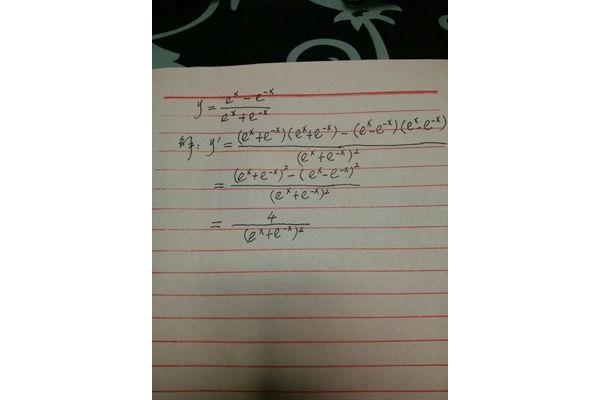 y = (e^x - e^{-x}) / (e^x + e^{-x})
解: y' = ((e^x + e^{-x})(e^x + e^{-x}) - (e^x - e^{-x})(e^x - e^{-x})) / (e^x + e^{-x})^2
= ((e^x + e^{-x})^2 - (e^x - e^{-x})^2) / (e^x + e^{-x})^2
= 4 / (e^x + e^{-x})^2